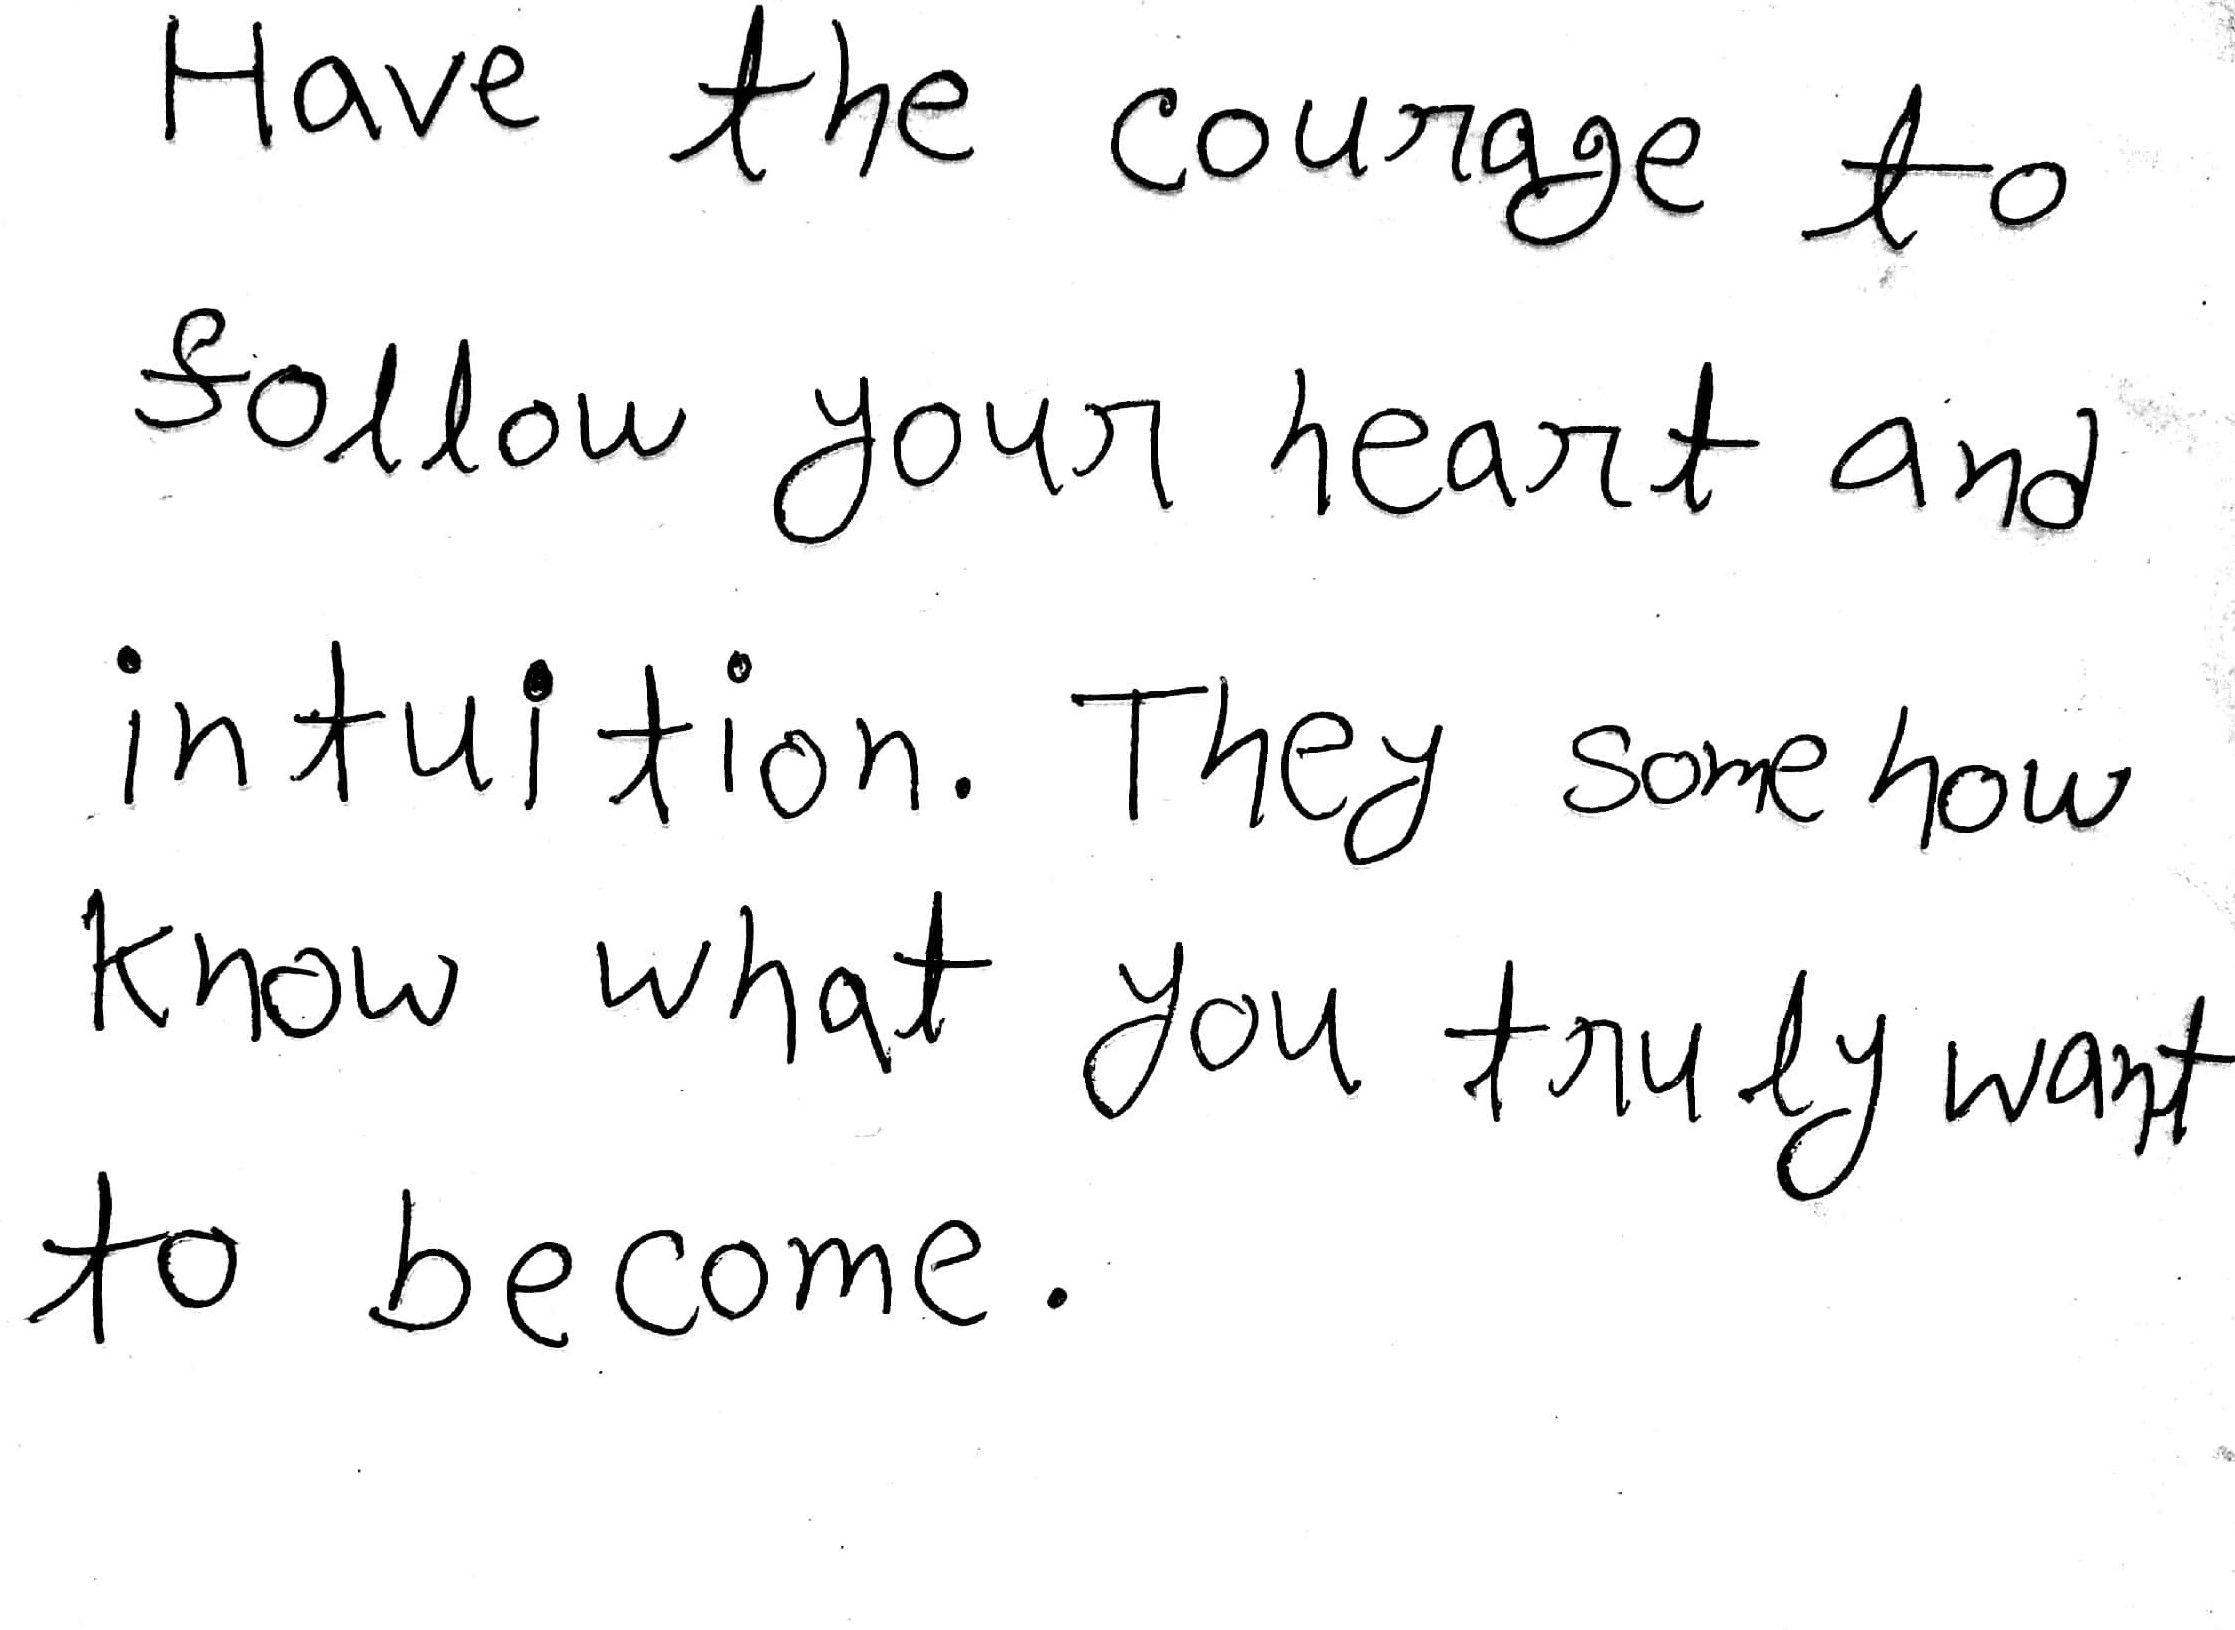 Have the courage to
follow your heart and
intuition. They somehow
know what you truly want
to become.